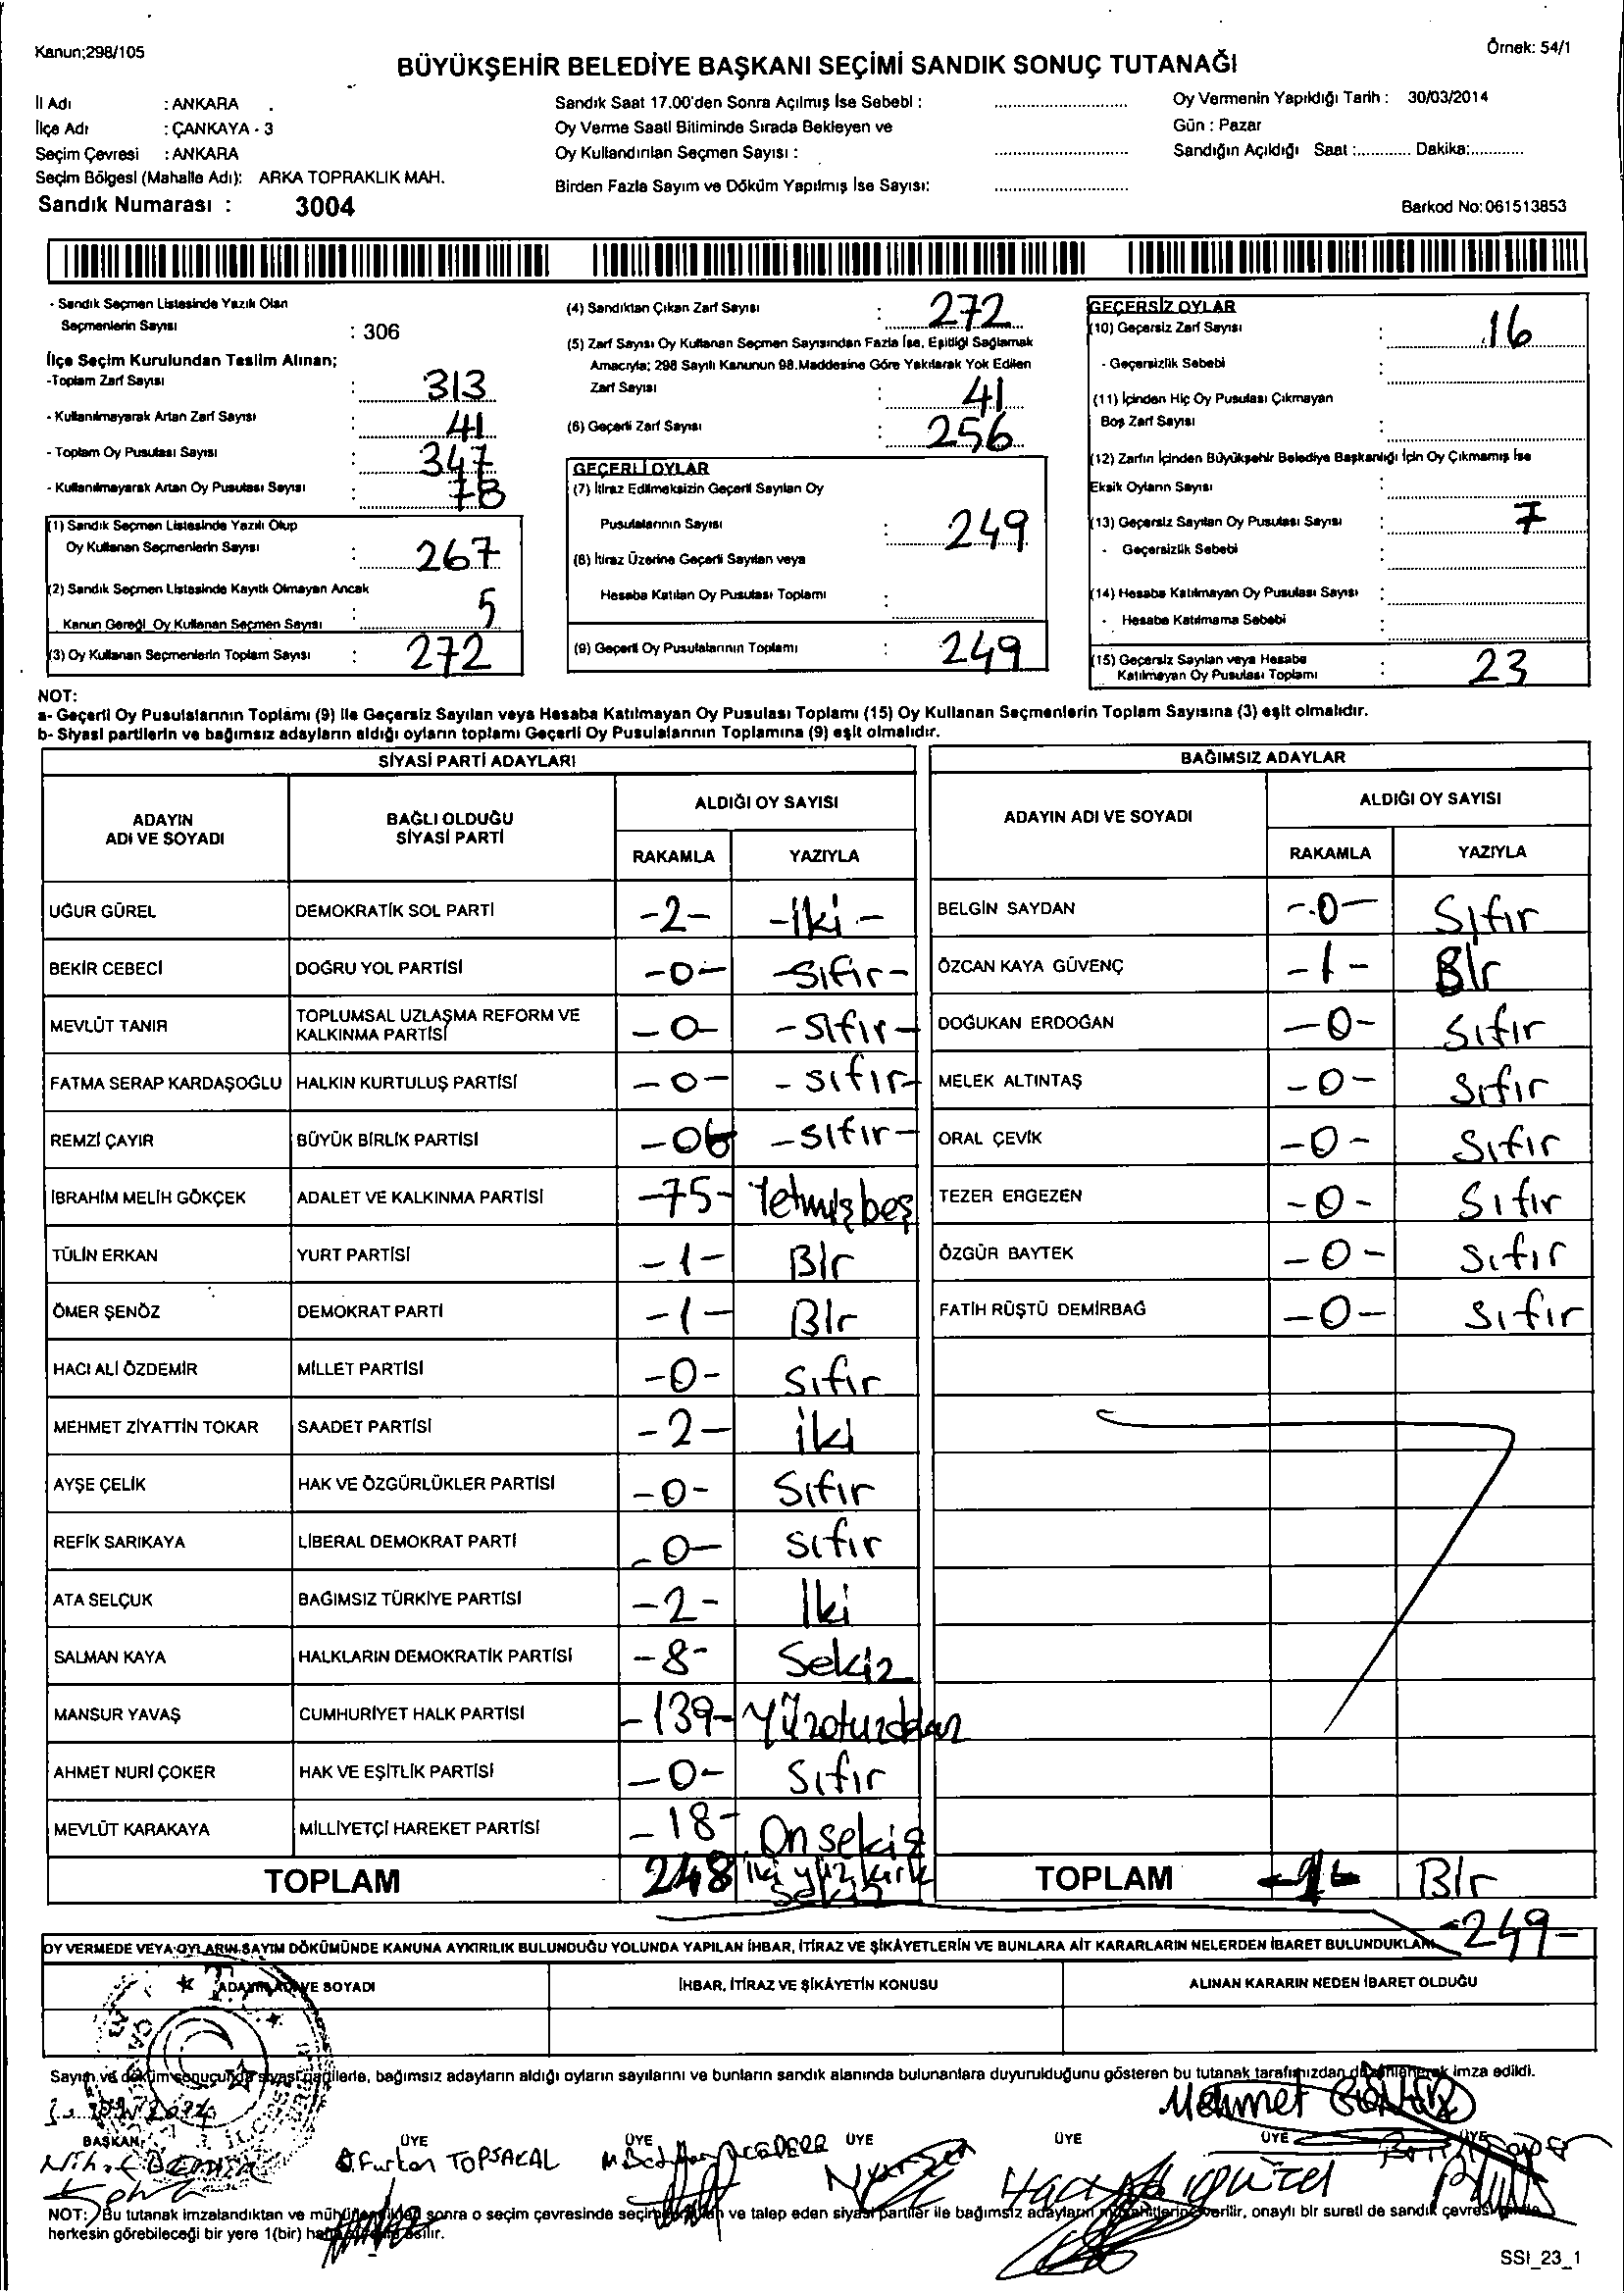 Kanun;298/105
Örnek: 54/1
BÜYÜKŞEHİR BELEDİYE BAŞKANI SEÇİMİ SANDIK SONUÇ TUTANAĞI
İl Adı : ANKARA
İlçe Adı : ÇANKAYA - 3
Seçim Çevresi : ANKARA
Seçim Bölgesi (Mahalle Adı): ARKA TOPRAKLIK MAH.
Sandık Numarası : 3004
Sandık Saat 17.00'den Sonra Açılmış İse Sebebi :
Oy Verme Saati Bitiminde Sırada Bekleyen ve
Oy Kullandırılan Seçmen Sayısı :
Birden Fazla Sayım ve Döküm Yapılmış İse Sayısı:
Oy Vermenin Yapıldığı Tarih : 30/03/2014
Gün : Pazar
Sandığın Açıldığı Saat :............ Dakika:............
Barkod No:061513853
- Sandık Seçmen Listesinde Yazılı Olan
Seçmenlerin Sayısı : 306
İlçe Seçim Kurulundan Teslim Alınan;
-Toplam Zarf Sayısı : 313
- Kullanılmayarak Artan Zarf Sayısı : 41
- Toplam Oy Pusulası Sayısı : 347
- Kullanılmayarak Artan Oy Pusulası Sayısı : 78
(1) Sandık Seçmen Listesinde Yazılı Olup
Oy Kullanan Seçmenlerin Sayısı : 267
(2) Sandık Seçmen Listesinde Kayıtlı Olmayan Ancak
Kanun Gereği Oy Kullanan Seçmen Sayısı : 5
(3) Oy Kullanan Seçmenlerin Toplam Sayısı : 272
(4) Sandıktan Çıkan Zarf Sayısı : 272
(5) Zarf Sayısı Oy Kullanan Seçmen Sayısından Fazla İse, Eşitliği Sağlamak
Amacıyla; 298 Sayılı Kanunun 98.Maddesine Göre Yakılarak Yok Edilen
Zarf Sayısı : 41
(6) Geçerli Zarf Sayısı : 256
GEÇERLİ OYLAR
(7) İtiraz Edilmeksizin Geçerli Sayılan Oy
Pusulalarının Sayısı : 249
(8) İtiraz Üzerine Geçerli Sayılan veya
Hesaba Katılan Oy Pusulası Toplamı :
(9) Geçerli Oy Pusulalarının Toplamı : 249
GEÇERSİZ OYLAR
(10) Geçersiz Zarf Sayısı : 16
- Geçersizlik Sebebi :
(11) İçinden Hiç Oy Pusulası Çıkmayan
Boş Zarf Sayısı :
(12) Zarfın İçinden Büyükşehir Belediye Başkanlığı İçin Oy Çıkmamış İse
Eksik Oyların Sayısı :
(13) Geçersiz Sayılan Oy Pusulası Sayısı : 7
- Geçersizlik Sebebi :
(14) Hesaba Katılmayan Oy Pusulası Sayısı :
- Hesaba Katılmama Sebebi :
(15) Geçersiz Sayılan veya Hesaba
Katılmayan Oy Pusulası Toplamı : 23
NOT:
a- Geçerli Oy Pusulalarının Toplamı (9) ile Geçersiz Sayılan veya Hesaba Katılmayan Oy Pusulası Toplamı (15) Oy Kullanan Seçmenlerin Toplam Sayısına (3) eşit olmalıdır.
b- Siyasi partilerin ve bağımsız adayların aldığı oyların toplamı Geçerli Oy Pusulalarının Toplamına (9) eşit olmalıdır.
SİYASİ PARTİ ADAYLARI
ADAYIN ADI VE SOYADI
BAĞLI OLDUĞU SİYASİ PARTİ
ALDIĞI OY SAYISI
RAKAMLA YAZIYLA
UĞUR GÜREL DEMOKRATİK SOL PARTİ -2- -iki-
BEKİR CEBECİ DOĞRU YOL PARTİSİ -0- -Sıfır-
MEVLÜT TANIR TOPLUMSAL UZLAŞMA REFORM VE KALKINMA PARTİSİ -0- -Sıfır-
FATMA SERAP KARDAŞOĞLU HALKIN KURTULUŞ PARTİSİ -0- -sıfır-
REMZİ ÇAYIR BÜYÜK BİRLİK PARTİSİ -0 -sıfır-
İBRAHİM MELİH GÖKÇEK ADALET VE KALKINMA PARTİSİ -75- Yetmişbeş
TÜLİN ERKAN YURT PARTİSİ -1- Bir
ÖMER ŞENÖZ DEMOKRAT PARTİ -1- Bir
HACI ALİ ÖZDEMİR MİLLET PARTİSİ -0- Sıfır
MEHMET ZİYATTİN TOKAR SAADET PARTİSİ -2- iki
AYŞE ÇELİK HAK VE ÖZGÜRLÜKLER PARTİSİ -0- Sıfır
REFİK SARIKAYA LİBERAL DEMOKRAT PARTİ -0- sıfır
ATA SELÇUK BAĞIMSIZ TÜRKİYE PARTİSİ -2- İki
SALMAN KAYA HALKLARIN DEMOKRATİK PARTİSİ -8- Sekiz
MANSUR YAVAŞ CUMHURİYET HALK PARTİSİ -139- Yüzotuzdokuz
AHMET NURİ ÇOKER HAK VE EŞİTLİK PARTİSİ -0- Sıfır
MEVLÜT KARAKAYA MİLLİYETÇİ HAREKET PARTİSİ -18- Onsekiz
TOPLAM 248 iki yüz kırk sekiz
BAĞIMSIZ ADAYLAR
ADAYIN ADI VE SOYADI
ALDIĞI OY SAYISI
RAKAMLA YAZIYLA
BELGİN SAYDAN -0- Sıfır
ÖZCAN KAYA GÜVENÇ -1- Bir
DOĞUKAN ERDOĞAN -0- Sıfır
MELEK ALTINTAŞ -0- Sıfır
ORAL ÇEVİK -0- Sıfır
TEZER ERGEZEN -0- Sıfır
ÖZGÜR BAYTEK -0- Sıfır
FATİH RÜŞTÜ DEMİRBAĞ -0- Sıfır
TOPLAM -1- Bir
-249-
OY VERMEDE VEYA OYLARIN SAYIM DÖKÜMÜNDE KANUNA AYKIRILIK BULUNDUĞU YOLUNDA YAPILAN İHBAR, İTİRAZ VE ŞİKÂYETLERİN VE BUNLARA AİT KARARLARIN NELERDEN İBARET BULUNDUKLARI
ADAYIN ADI VE SOYADI
İHBAR, İTİRAZ VE ŞİKÂYETİN KONUSU
ALINAN KARARIN NEDEN İBARET OLDUĞU
Sayım ve döküm sonucunda siyasi partilerle, bağımsız adayların aldığı oyların sayılarını ve bunların sandık alanında bulunanlara duyurulduğunu gösteren bu tutanak tarafımızdan düzenlenerek imza edildi.
Mehmet
BAŞKAN ÜYE ÜYE ÜYE ÜYE ÜYE ÜYE
Furkan TOPSAKAL
NOT: Bu tutanak imzalandıktan ve mühürlendikten sonra o seçim çevresinde seçime katılan ve talep eden siyasi partiler ile bağımsız adayların müşahitlerine verilir, onaylı bir sureti de sandık çevresinde
herkesin görebileceği bir yere 1(bir) hafta süreyle asılır.
SSI_23_1